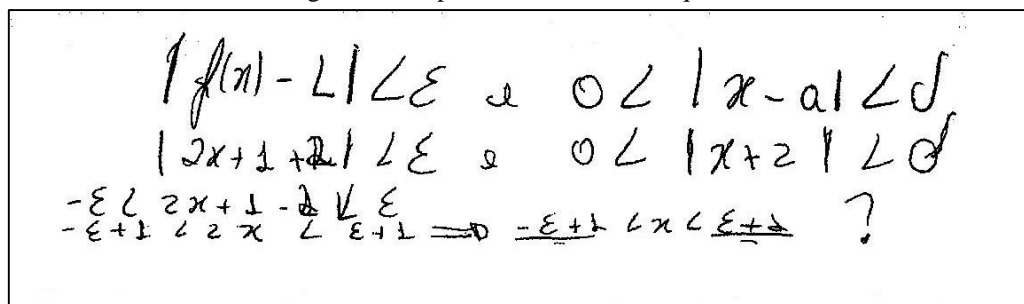 |f(x) - L| < ε e 0 < |x - a| < δ
|2x + 1 + 2| < ε e 0 < |x + 2| < δ
-ε < 2x + 1 - 2 < ε
-ε + 1 < 2x < ε + 1 ⇒ -ε + 1 < x < ε + 1 ?